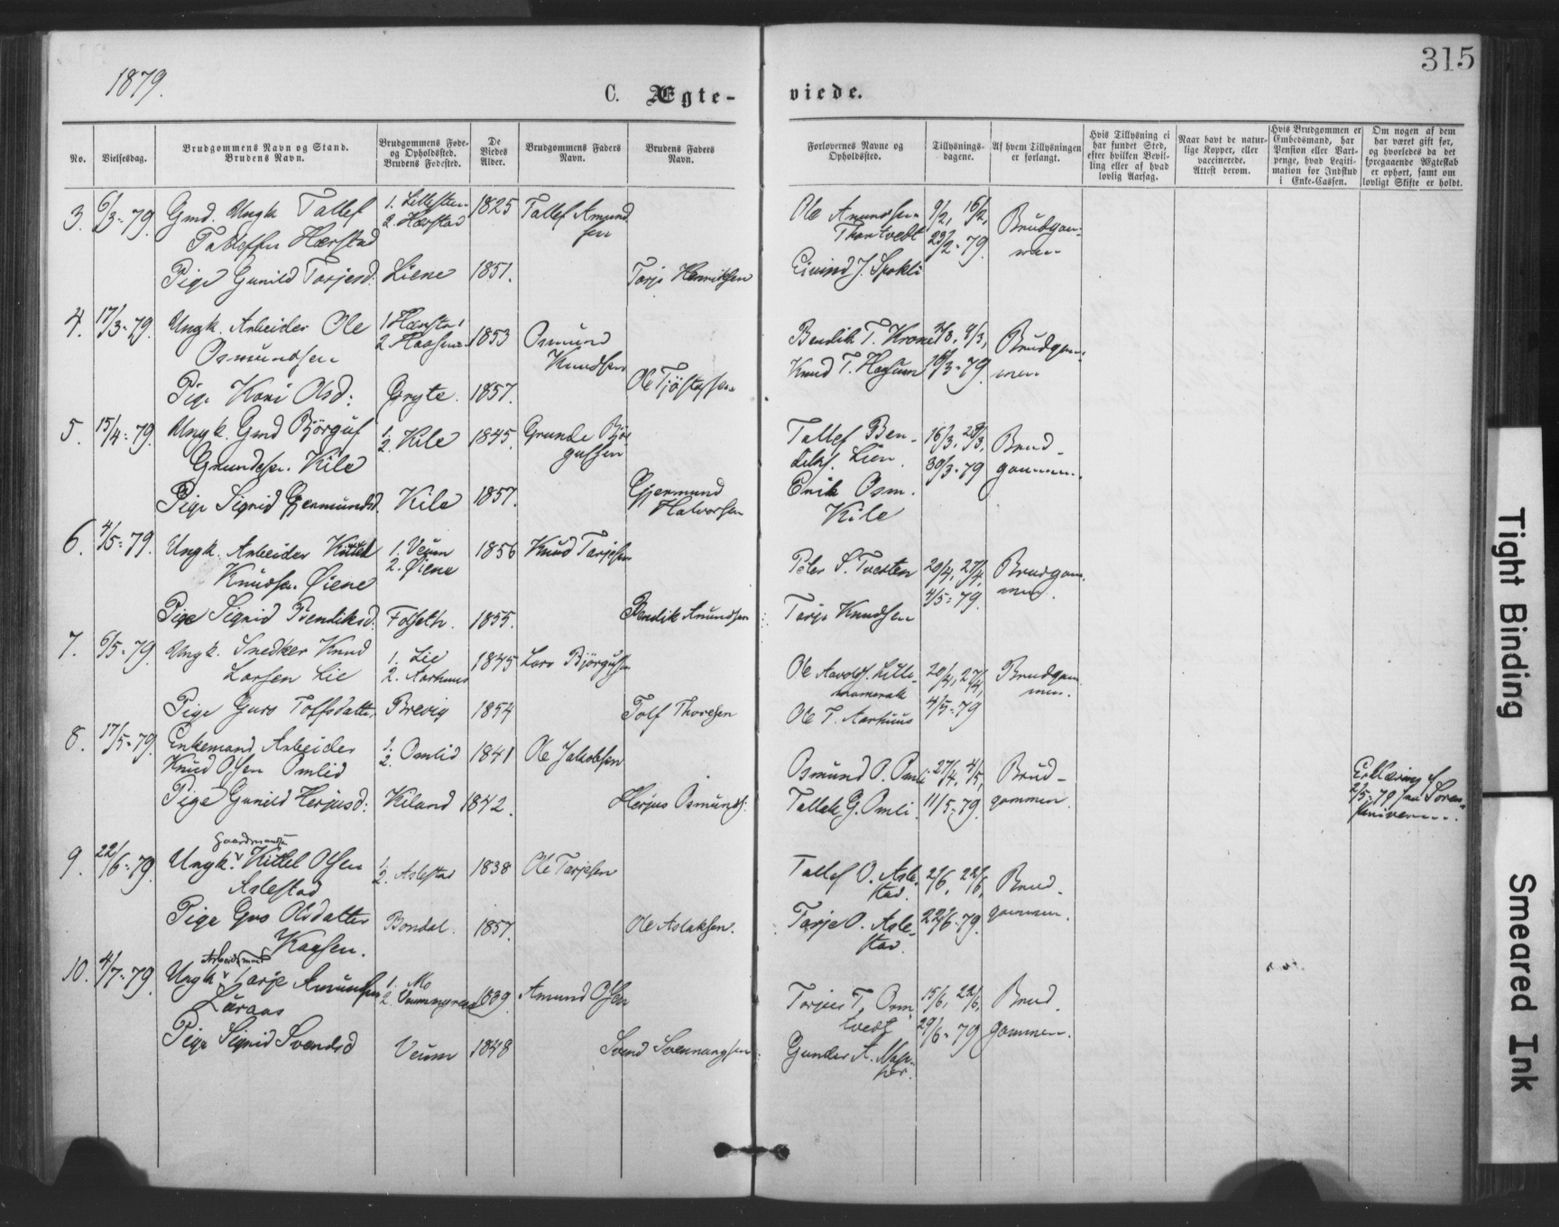 315
1879.
C. Ægte-
viede.
No.
Vielsesdag.
Brudgommens Navn og Stand.
Brudens Navn.
Brudgommens Føde-
og Opholdssted.
Brudens Fødested.
De
Viedes
Alder.
Brudgommens Faders
Navn.
Brudens Faders
Navn.
Forlovernes Navne og
Opholdssted.
Tillysnings-
dagene.
Af hvem Tillysningen
er forlangt.
Hvis Tillysning ei
har fundet Sted,
efter hvilken Bevil-
ling eller af hvad
lovlig Aarsag.
Naar havt de natur-
lige Kopper, eller
vaccinerede.
Attest derom.
Hvis Brudgommen er
Embedsmand, har
Pension eller Vart-
penge, hvad Legiti-
mation for Indskud
i Enke-Cassen.
Om nogen af dem
har været gift før,
og hvorledes da det
foregaaende Ægteskab
er ophørt, samt om
lovligt Skifte er holdt.
3. 6/3-79. Gmd. Ungk. Tallef 1. 1825 Tallef Amund
Tallefsen Hærstad 2. Hærstad sen
Pige Gunild Torjesd. Liene 1851. Torje Henriksen
Ole Amundsen 9/2, 16/2, Brudgom-
Thortvedt 23/2-79. men
Eivind J.
4. 17/3-79. Ungk. Arbeider Ole 1. 1853 Osmund
Osmundsen 2. Knudsen
Pige Kari Olsd: 1857. Ole
Bendik T. Brudgom-
Knud T. 16/3-79. men
5. 15/4-79. Ungk. Gmd Bjørguf 1. 2. Kile 1845. Grunde Bjør
Grundesen Kile gufsen
Pige Sigrid Gjermundsd. Kile 1857. Gjermund
Halvorsen
Tallef Ben- 16/3, 23/3, Brud-
diks. Lien. 30/3-79 gommen.
Erik Osm.
Kile
6. 4/5-79. Ungk. Arbeider 1. Veum 1856 Knud Tarjesen
Knudsen Øiene 2. Øiene
Pige Sigrid Bendiksd. 1855. Bendik Amundsen
Peder S. Tveten 20/4, 27/4, Brudgom-
4/5-79. men.
Torje Knudsen
7. 6/5-79. Ungk. Snedker Knud 1. Lie 1845 Lars Bjørgufsen
Larsen Lie 2. Aarhuus
Pige Guro Tolfsdatter Brevig 1854 Tolf Thoresen
Ole Aavolds. Lille- 20/4, 27/4, Brudgom-
4/5-79 men.
Ole T. Aarhuus
8. 17/5-79. Enkemand Arbeider 1. 2. Omlid 1841 Ole Jakobsen
Knud Olsen Omlid
Pige Gunild Herjusd: Kiland 1842. Herjus Osmunds.
Osmund O. Omli 27/4, 4/5, Brud-
Tallak G. Omli. 11/5-79. gommen.
Erklæring af
2/5-79 fra Soren-
skriveren.
9. 22/6-79. Gaardmand
Ungk. Kittel Olsen 1. 2. Aslestad 1838 Ole Tarjesen
Aslestad
Pige Gro Olsdatter Bondal. 1857. Ole Aslaksen.
Kaasen.
Tallef O. Asle- 2/6, Brud-
stad. gommen.
Torje O. Asle- 22/6-79.
stad.
10. 4/7-79. Arbeidsmand
Ungk. Tarje Amundsen 1. Mo 1839. Amund Olsen
2.
Pige Sigrid Svendsd Veum 1848 Svend Svennungsen
Torjus T. Osm- 15/6, 22/6, Brud-
tvedt 29/6-79 gommen.
Gunder A.
Tight Binding
Smeared Ink